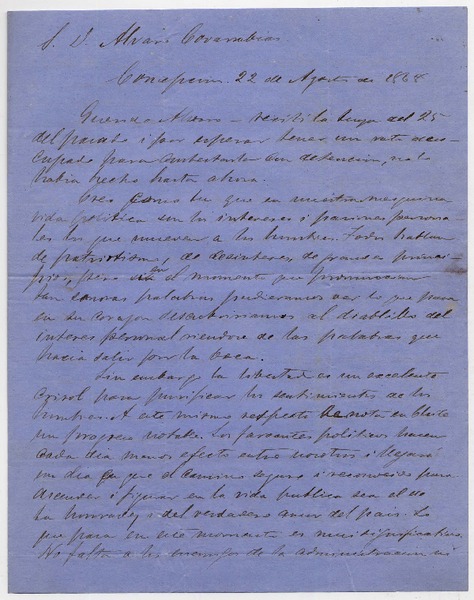 S. D. Alvaro Covarrubias
Concepcion 22 de Agosto de 1864
Querido Alvaro – recibí la tuya del 25
del pasado i por esperar tener un rato deso-
cupado para contestarla con detencion, no lo
habia hecho hasta ahora.
Creo como tu que en nuestra mezquina
vida politica son los intereses i pasiones persona-
les los que mueven a los hombres. Todos hablan
de patriotismo, de desinteres, de grandes princi-
pios, pero en el momento que pronuncian
tan sonoras palabras pudieramos ver lo que pasa
en su corazon descubririamos al diablillo del
interes personal riendose de las palabras que
hacia salir por la boca.
Sin embargo la libertad es un excelente
crisol para purificar los sentimientos de los
hombres. A este mismo respecto se nota en Chile
un progreso notable. Los farsantes politicos hacen
cada dia menos efecto entre nosotros i llegará
un dia en que el camino seguro i reconocido para
i figurar en la vida publica sea el de
la honradez i del verdadero amor del pais. Lo
que pasa en este momento es mui significativo.
No falta a los enemigos de la administracion ni